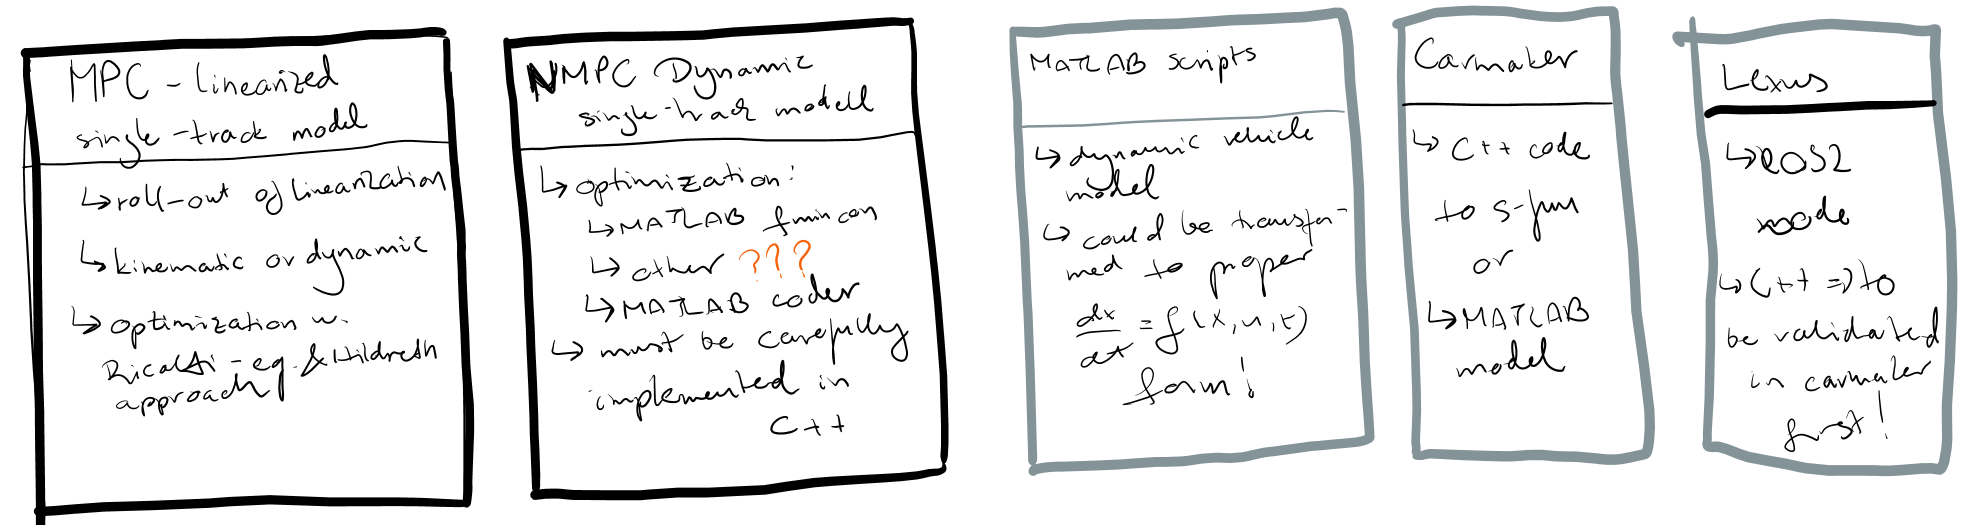 MPC - linearized
single-track model
↳ roll-out of linearization
↳ kinematic or dynamic
↳ optimization w.
Ricatti-eq. & Hildreth
approach
NMPC Dynamic
single-track modell
↳ optimization:
↳ MATLAB fmincon
↳ other ???
↳ MATLAB coder
↳ must be carefully
implemented in
C++
MATLAB scripts
↳ dynamic vehicle
model
↳ could be transfor-
med to proper
dx/dt = f(x,u,t)
form!
Carmaker
↳ C++ code
to s-fun
or
↳ MATLAB
model
Lexus
↳ ROS2
node
↳ C++ => to
be validated
in carmaker
first!